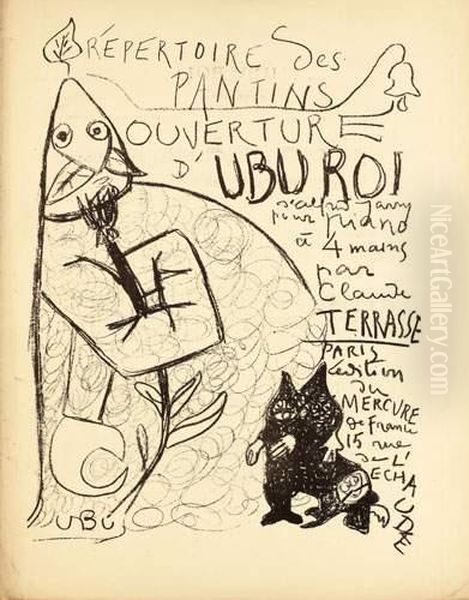 RÉPERTOIRE des
PANTINS
OUVERTURE
D' UBU ROI
d'alfred Jarry
pour Piano
à 4 mains
par
Claude
TERRASSE
PARIS
édition
du
MERCURE
de France
15 rue
de L'
ECHAUDE
UBU
NiceArtGallery.com